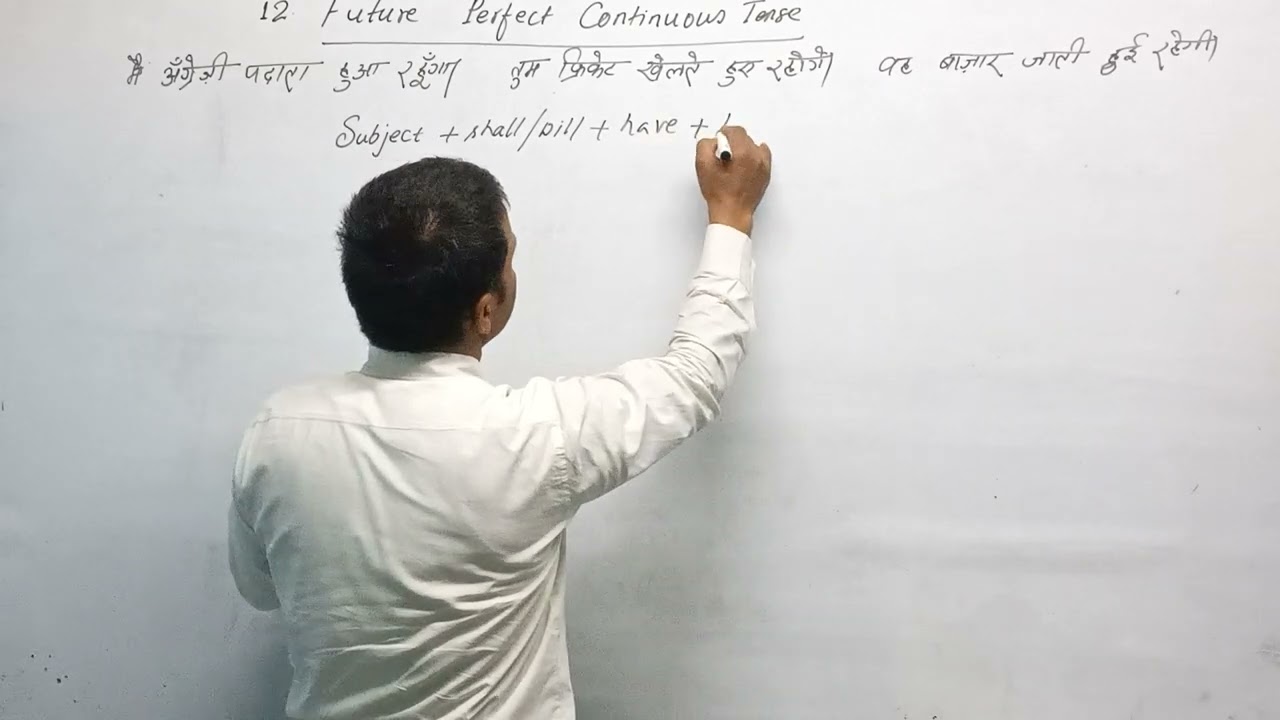 12. Future Perfect Continuous Tense
मैं अँग्रेज़ी पढ़ाता हुआ रहूँगा। तुम क्रिकेट खेलते हुए रहोगे। वह बाज़ार जाती हुई रहेगी।
Subject + shall/will + have +